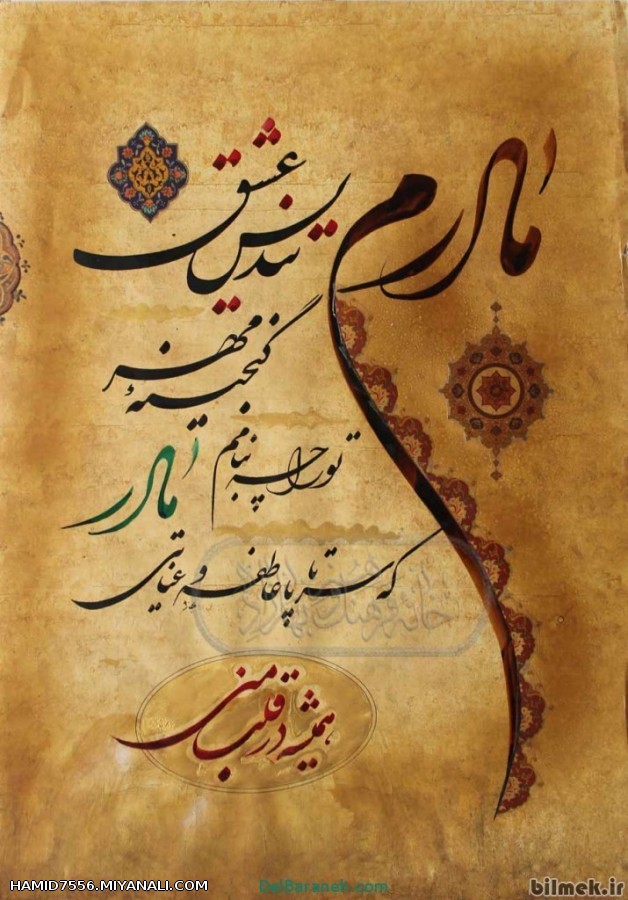 مادرم
تندیس عشق
گنجینهٔ مهر
تو را چه بنامم
مادر
که سر تا پا عاطفه و عنایتی
همیشه در قلب منی
خانه فرهنگ و هنر
HAMID7556.MIYANALI.COM
DelBaraneh.com
bilmek.ir